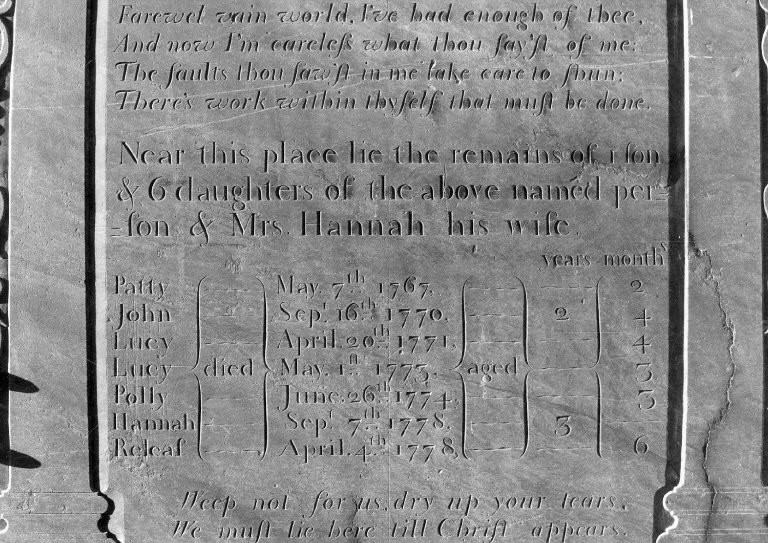 Farewel vain world, I've had enough of thee,
And now I'm careleſs what thou ſay'ſt of me:
The faults thou ſaw'ſt in me take care to ſhun;
There's work within thyſelf that muſt be done.
Near this place lie the remains of 1 ſon
& 6 daughters of the above named per-
-ſon & Mrs. Hannah his wife.
years months
Patty May. 7th 1767. 2
John Sept. 16th 1770. 2 4
Lucy April. 20th 1771. 4
Lucy died May. 1ſt 1773. aged 3
Polly June. 26th 1774. 3
Hannah Sept. 7th 1778. 3
Releaf April. 4th 1778. 6
Weep not for us, dry up your tears,
We muſt lie here till Chriſt appears.